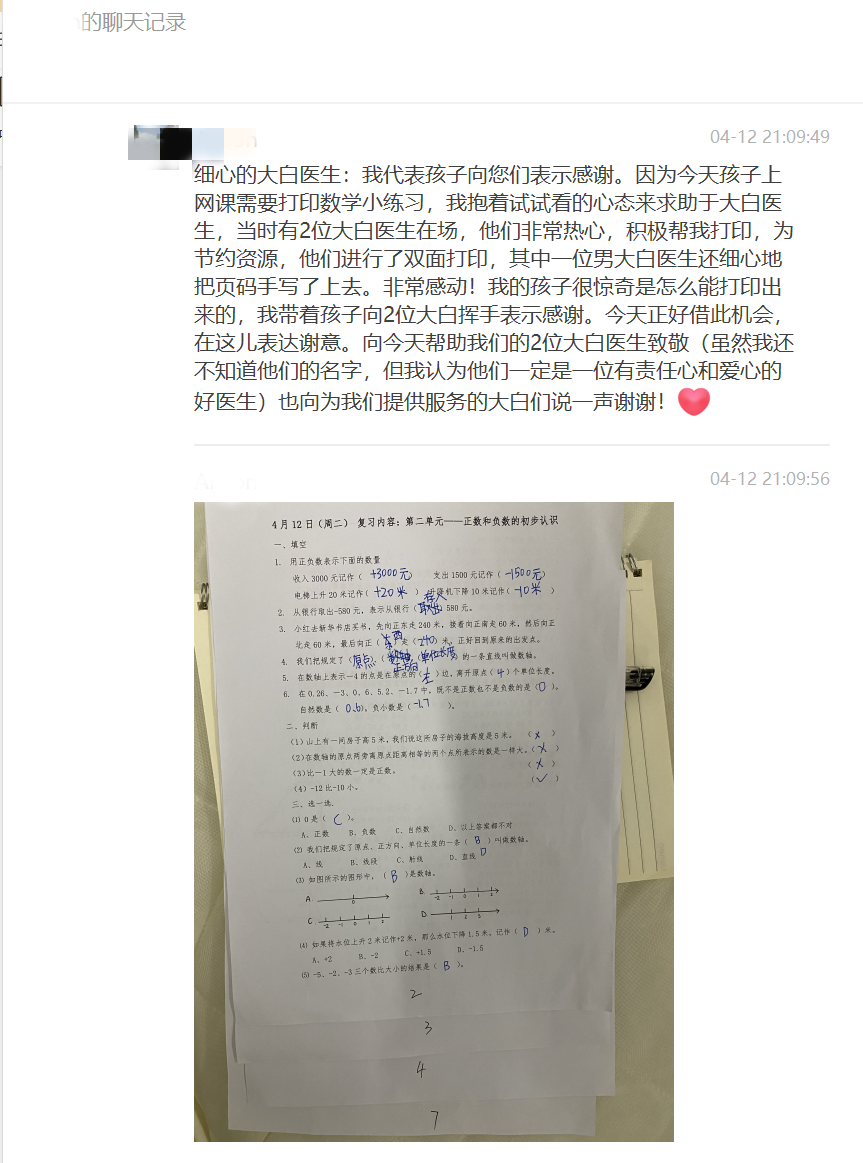 的聊天记录
04-12 21:09:49
细心的大白医生：我代表孩子向您们表示感谢。因为今天孩子上
网课需要打印数学小练习，我抱着试试看的心态来求助于大白医
生，当时有2位大白医生在场，他们非常热心，积极帮我打印，为
节约资源，他们进行了双面打印，其中一位男大白医生还细心地
把页码手写了上去。非常感动！我的孩子很惊奇是怎么能打印出
来的，我带着孩子向2位大白挥手表示感谢。今天正好借此机会，
在这儿表达谢意。向今天帮助我们的2位大白医生致敬（虽然我还
不知道他们的名字，但我认为他们一定是一位有责任心和爱心的
好医生）也向为我们提供服务的大白们说一声谢谢！
04-12 21:09:56
4月12日（周二） 复习内容：第二单元——正数和负数的初步认识
一、填空
1. 用正负数表示下面的数量
收入3000元记作（ +3000元 ） 支出1500元记作（ -1500元 ）
电梯上升20米记作（ +20米 ） 升降机下降10米记作（ -10米 ）
2. 从银行取出-580元，表示从银行（ 存入 ）580元。
3. 小红去新华书店买书，先向正东走240米，接着向正南走60米，然后向正
北走60米，最后向正（ 西 ）走（ 240 ）米，正好回到原来的出发点。
4. 我们把规定了（ 原点 ）、（ 正方向 ）、（ 单位长度 ）的一条直线叫做数轴。
5. 在数轴上表示—4的点是在原点的（ 左 ）边，离开原点（ 4 ）个单位长度。
6. 在0.26、—3、0、6、5.2、—1.7中，既不是正数也不是负数的是（ 0 ）。
自然数是（ 0.6 ），负小数是（ -1.7 ）。
二、判断
(1)山上有一间房子高5米，我们说这所房子的海拔高度是5米。 （ × ）
(2)在数轴的原点两旁离原点距离相等的两个点所表示的数是一样大。（ × ）
(3)比—1大的数一定是正数。 （ × ）
(4)-12比-10小。 （ ✓ ）
三、选一选.
⑴ 0是（ C ）。
A、正数 B、负数 C、自然数 D、以上答案都不对
⑵ 我们把规定了原点、正方向、单位长度的一条（ B ）叫做数轴。
A、线 B、线段 C、射线 D、直线 D
⑶ 如图所示的图形中，（ B ）是数轴。
A. 0
B. -2 -1 0 1 2
C -2 -1 0 1 2
D. 1 2 3
⑷ 如果将水位上升2米记作+2米，那么水位下降1.5米，记作（ D ）米。
A、+2 B、-2 C、+1.5 D、-1.5
⑸ -5、-2、-3三个数比大小的结果是（ B ）。
2
3
4
7